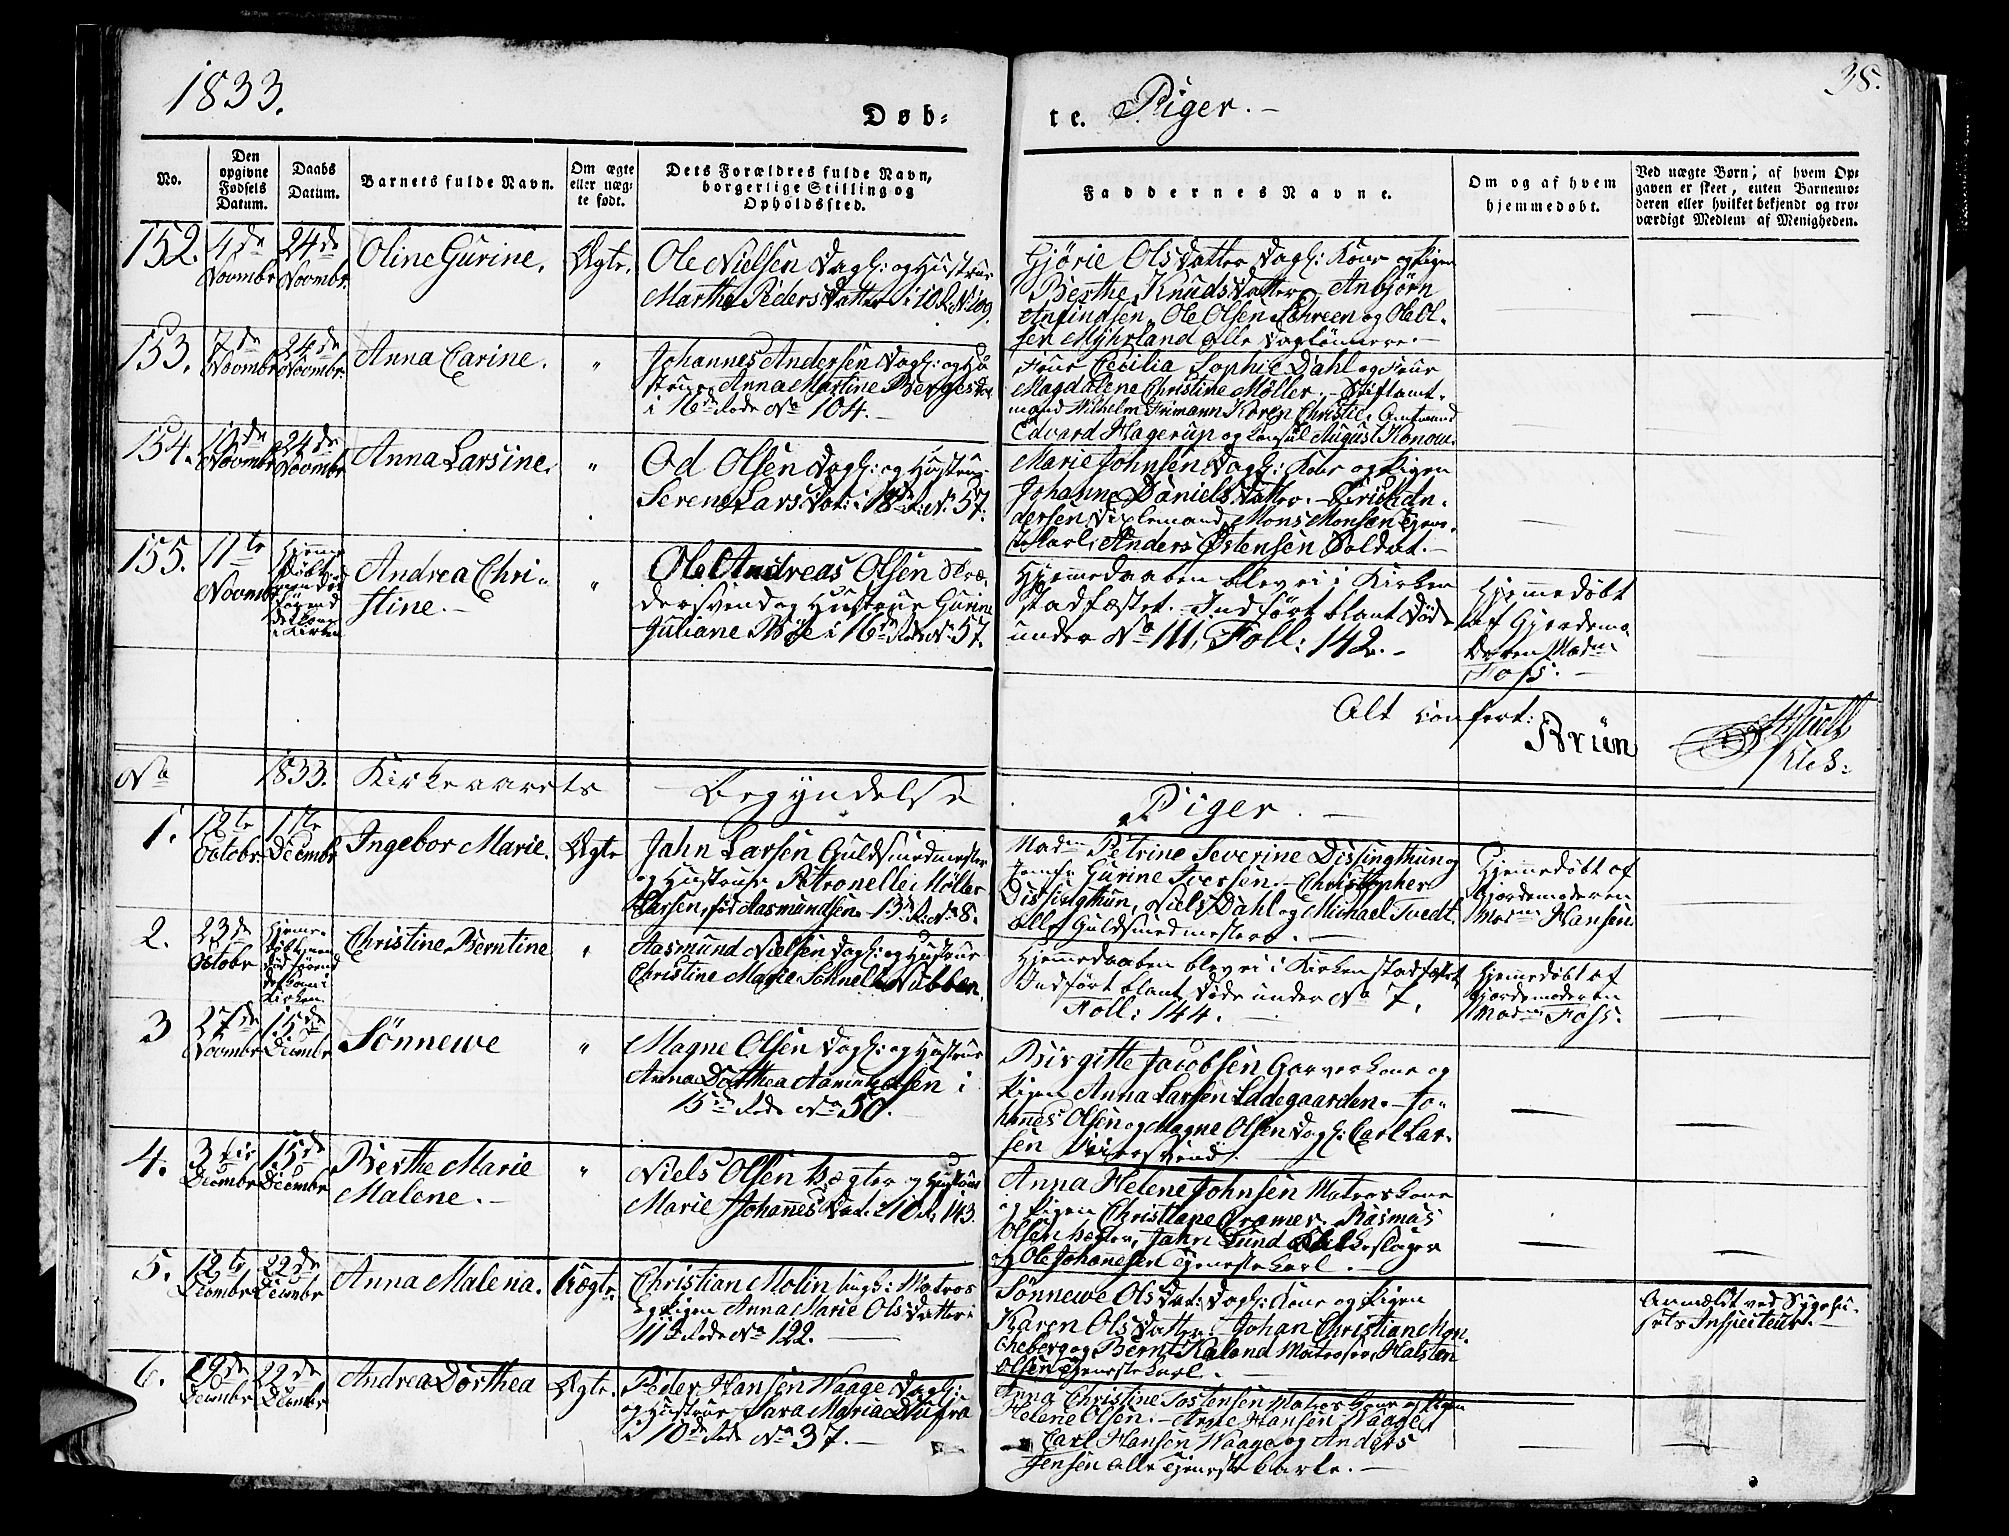 1833.
38.
Døb-
te. Piger.-
No.
Den opgivne Fødsels Datum.
Daabs Datum.
Barnets fulde Navn.
Om ægte eller uægte født.
Dets Forældres fulde Navn, borgerlige Stilling og Opholdssted.
Faddernes Navne.
Om og af hvem hjemmedøbt.
Ved uægte Børn; af hvem Opgaven er skeet, enten Barnemoderen eller hvilket bekjendt og troværdigt Medlem af Menigheden.
152. 4de Novmbr 24de Novmbr. Oline Gurine. Ægte. Ole Nielsen Dagl: og Hustrue
Marthe Peders Datter i 10. R. N. 109.
Gjørie Olsdatter Dagl: Kone og Pigen
Berthe Knudsdatter - Anbjørn
Anfindsen, Ole Olsen Schreen og Ole Ol-
sen Myhrland alle Daglønnere.-
153. 7de Novmbr 24de Novmbr. Anna Carine. " Johannes Andersen Dagl: og Hu
strue Anna Martine Berges Dat
i 16de Rode No 104.-
Frue Cecilia Sophie Dahl og Frue
Magdalene Christine Møller.- Stiftamt-
mand Wilhelm Frimann Koren Christie, Amtmand
Edvard Hagerup og Consul August Konow.
154. 24de Novmbr Anna Larsine. " Od Olsen Dagl: og Hustrue
Serene Lars Dat: i 18de R. N. 57.
Marie Johnsen Dagl: Kone og Pigen
Johanne Daniels Datter.- Erick An-
dersen, Mons Monsen Tjene-
ste Karl, Anders Østensen Soldat.-
155. 11te Novmbr Hjemme
Døbt
i Kirken
Andrea Chri-
stine.-
" Ole Andreas Olsen Skræ-
dersvend og Hustrue Gurine
Juliane Bøe i 16de Rode No 57.
Hjemmedaaben blev ei i Kirken
stadfæstet.- Indført blant Døde
under No 111, Foll: 142.-
Hjemmedøbt
af Gjordemo-
deren Madm
Foss.-
Alt confert:
Brun
No 1833. Kirkeaarets Begyndelse Piger.-
1. 12te Octobr. 1ste Decmbr Ingebor Marie. Ægte Jahn Larsen Guldsmedmester
og Hustrue Petronelle Møller
Larsen, fød Rasmundsen. 13de R. No 8.
Madm Petrine Severine Dissingthun og
Jomfr Gurine Iversen.- Christopher
Dissingthun, Niels Dahl og Michael Tvedt
alle Guldsmedmestere.-
Hjemmedøbt af
Gjordemoderen
Madm Hansen
2. 23de Octobr Hjemme-
døbt
Kirken
Christine Berntine " Rasmund Nielsen Dagl: og Hustrue
Christine Marie Schnell Nubben.
Hjemmedaaben blev ei i Kirken stadfæstet
Indført blant Døde under No 7,
Foll: 144.-
Hjemmedøbt af
Gjordemoderen
Madm Foss.
3 27de Novmbr 15de Decmbr. Sønnewe " Magne Olsen Dagl: og Hustrue
Anna Dorthea Aamundsen i
15de Rode No 50.
Birgitte Jacobsen Garverkone og
Pigen Anna Larsen Ladegaarden.- Jo-
hannes Olsen og Magne Olsen Dagl: Carl Lar-
sen
4. 3die Decmbr 15de Decmbr Berthe Marie
Malene.-
" Niels Olsen Vægter og Hustrue
Marie Johannes Dat. i 10 R. 143.
Anna Helene Johnsen Matroskone
og Pigen Christiane Cramer. Rasmus
Olsen Vægter, Jahn Lund Blikkeslager
og Ole Johannesen Tjenestekarl.-
5. 12te Decmbr 22de Decmbr Anna Malena. Uægte. Christian Molin ungk: Matros
og Pigen Anna Marie Olsdatter i
11te Rode No 122.
Sønnewe Ols Dat: Dagl: Kone og Pigen
Karen Olsdatter.- Johan Christian Mon-
cheberg og Bernt Kaland Matroser, Halsten
Olsen Tjenestekarl.-
Anmeldt ved Sygehu-
sets Inspecteur.-
6. 19de Decmbr 22de Decmbr Andrea Dorthea Ægte. Peder Hansen Waage Dagl:
og Hustrue Sara Maria Dufra
i 10de Rode No 37.-
Anna Christine Tostensen Matroskone og Pigen
Helene Olsen.- Arne Hansen Waage,
Carl Hansen Waage og Anders
Jensen alle Tjenestekarle.-